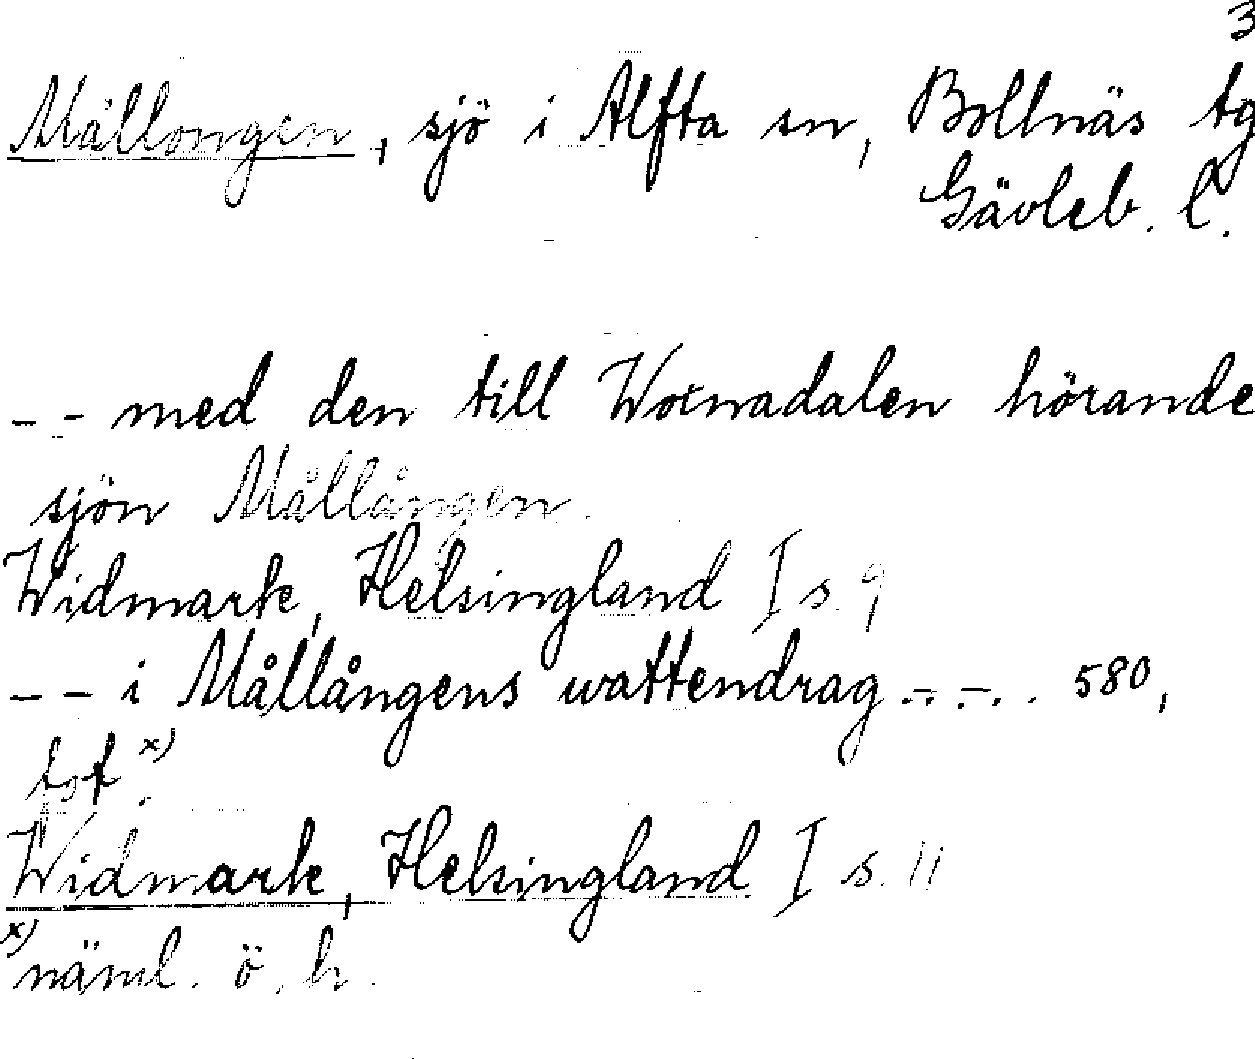 3
Mållongen, sjö i Alfta sn, Bollnäs tg
Gävleb. l.
-- med den till Wornadalen hörande
sjön Mållången.
Widmark, Helsingland I s. 9
-- i Mållångens wattendrag -.-.. 580,
fot x).
Widmark, Helsingland I s. 11
x) näml. ö. h.